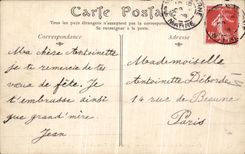 Carte Postale
Tous les pays étrangers n'acceptent pas la correspondance
Se renseigner à la poste.
Correspondance
Adresse
Ma chère Antoinette
je te remercie de tes
vœux de fête. Je
t'embrasse ainsi
que grand'mère
Jean
Mademoiselle
Antoinette Déborde
14 rue de Beaune
Paris